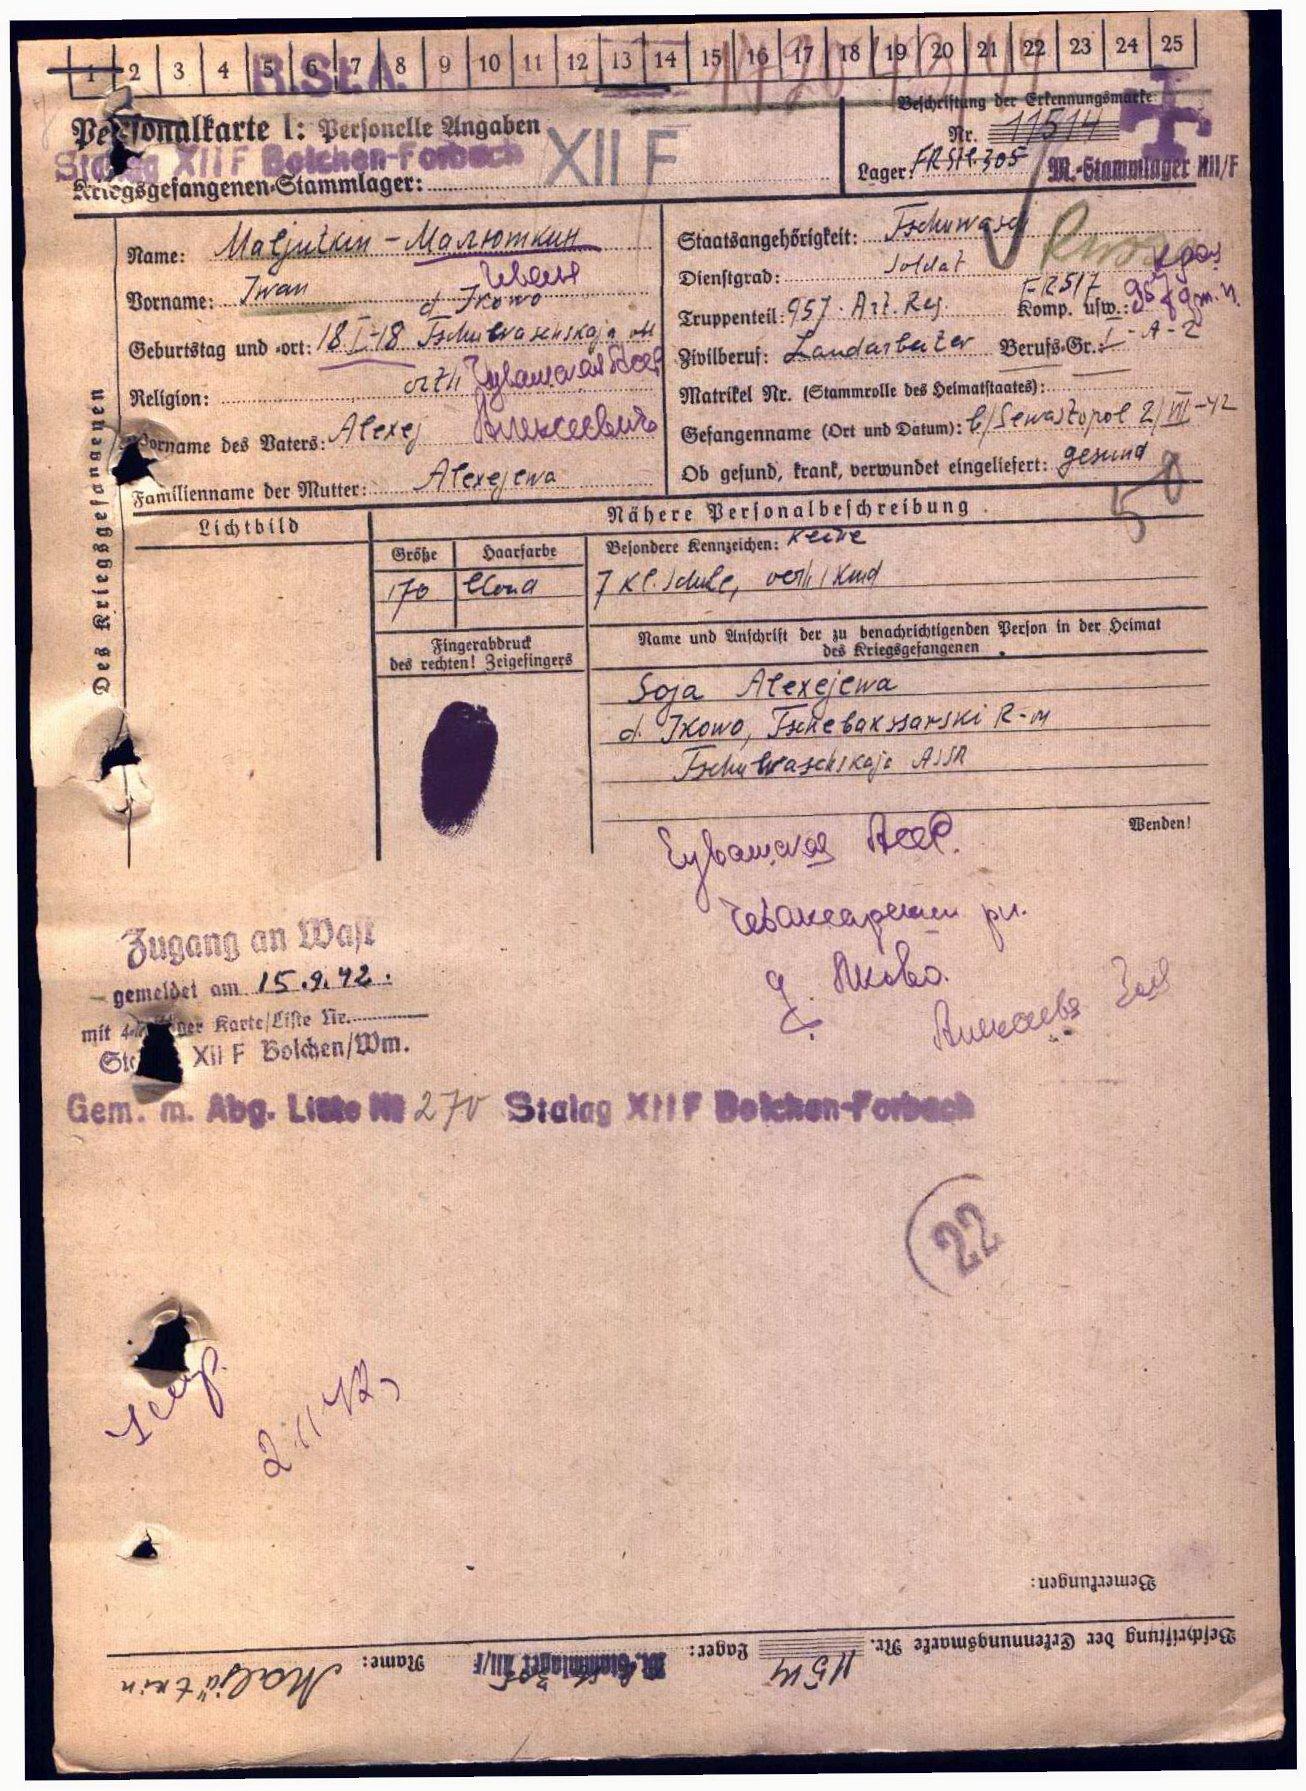 1 2 3 4 5 6 7 8 9 10 11 12 13 14 15 16 17 18 19 20 21 22 23 24 25
R.St.A.
Personalkarte I: Personelle Angaben
Beschriftung der Erkennungsmarke
Nr. 11514
Stalag XII F Bolchen-Forbach
XII F
Kriegsgefangenen-Stammlager:
Lager: FR Stl. 305 M.-Stammlager XII/F
Name: Maljutkin - Малюткин
Staatsangehörigkeit: Tschuwasch
Vorname: Iwan Иван
Dienstgrad: Soldat
d Ikowo
Geburtstag und -ort: 18 I-18 Tschuwaschskaja
Truppenteil: 957. Art. Reg. Komp. usw.:
Zivilberuf: Landarbeiter Berufs-Gr.: I-A-2
Religion: orth
Matrikel Nr. (Stammrolle des Heimatstaates):
Vorname des Vaters: Alexej Алексеевич
Gefangenname (Ort und Datum): b/Sewastopol 2/VII-42
Familienname der Mutter: Alexejewa
Ob gesund, krank, verwundet eingeliefert: gesund
Des Kriegsgefangenen
Lichtbild
Nähere Personalbeschreibung
Größe Haarfarbe Besondere Kennzeichen: keine
170 blond 7 Kl. Schule, verh. 1 Kind
Fingerabdruck
des rechten! Zeigefingers
Name und Anschrift der zu benachrichtigenden Person in der Heimat
des Kriegsgefangenen
Soja Alexejewa
d. Ikowo, Tschebakssarski R-n
Tschuwaschskaja ASSR
Wenden!
Чувашская Асср.
Чебоксарский рн.
д. Иково.
Алексеева Зоя
Zugang an Wast
gemeldet am 15.9.42.
mit ger Karte/Liste Nr.
XII F Bolchen/Wm.
Gem. m. Abg. Liste № 270 Stalag XII F Bolchen-Forbach
22
2.11.42
Bemerkungen:
Beschriftung der Erkennungsmarke Nr. 11514 Lager: M.-Stammlager XII/F Name: Maljutkin